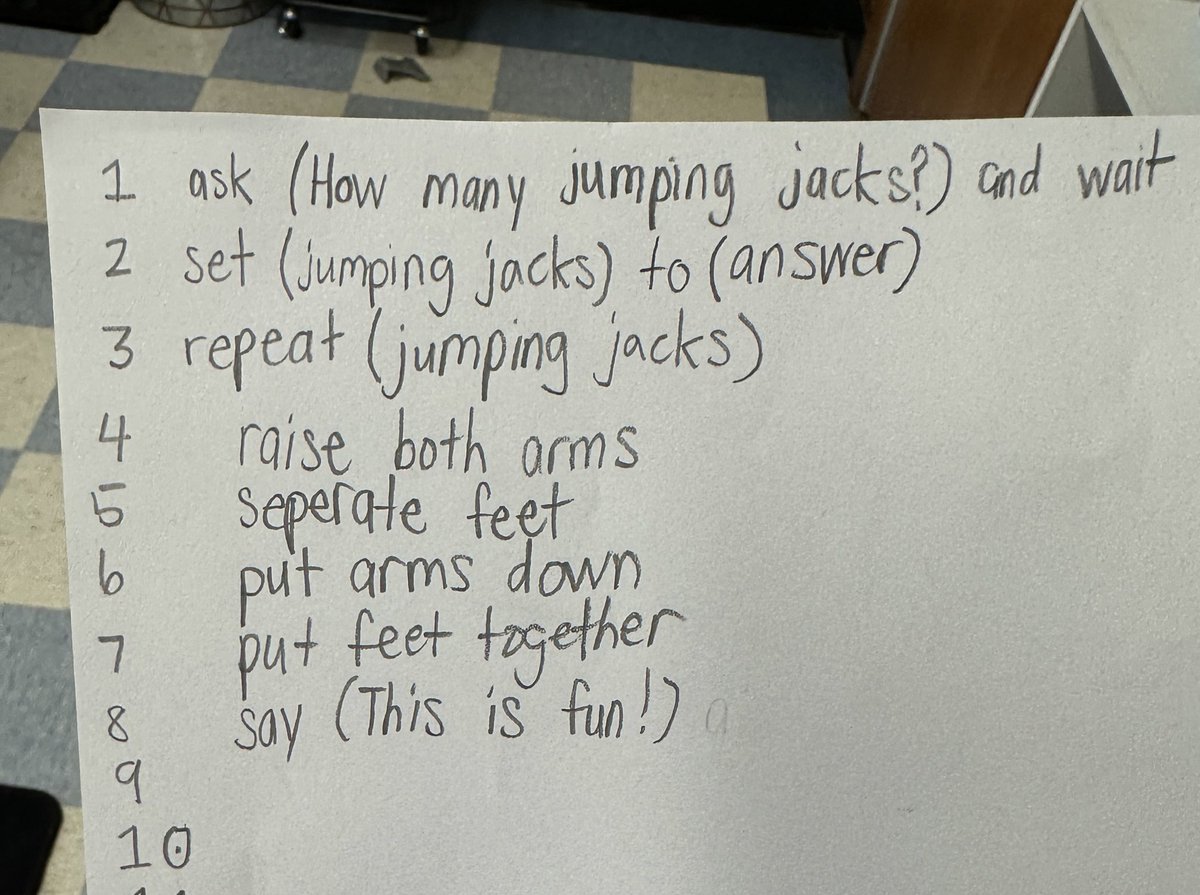 1 ask (How many jumping jacks?) and wait
2 set (jumping jacks) to (answer)
3 repeat (jumping jacks)
4 raise both arms
5 seperate feet
6 put arms down
7 put feet together
8 say (This is fun!)
9
10